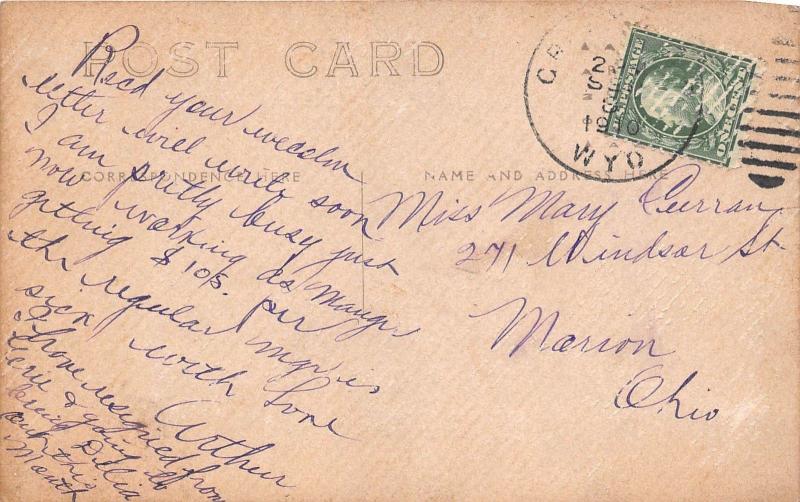 POST CARD
CORRESPONDENCE HERE
NAME AND ADDRESS HERE
WYO
ONE CENT
Recd your
letter will write soon
I am pretty busy just
now working as Mangr
getting $105. per
the regular mgr is
sick with love
Arthur
I have resigned from
& going to
out this
Month
Miss Mary Curran
271 Windsor St.
Marion
Ohio